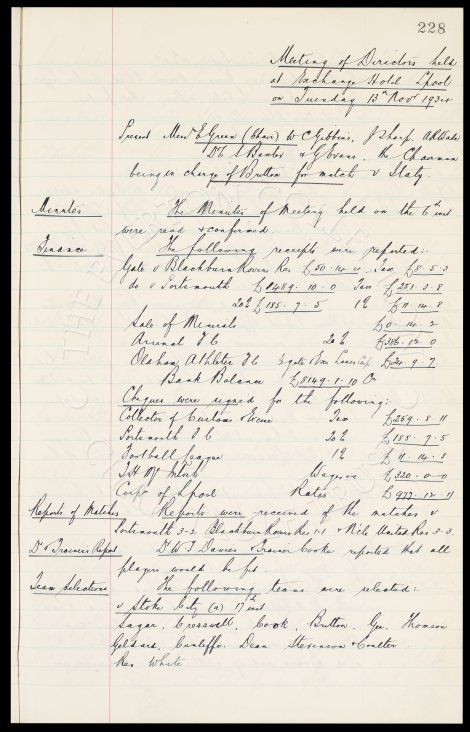 228
Meeting of Directors held
at Exchange Hotel Lpool
on Tuesday 13th Novr 1934
Present Messrs E Green (Chair) W C Gibbins, J Sharp, A R Wade
Dr C S Baxter & G Evans. the Chairman
being in charge of Britton for match v Italy.
Minutes The Minutes of Meeting held on the 6th inst
were read & confirmed.
Finance The following receipts were reported:
Gate v Blackburn Rovers Res £50.14.0 Tax £8.5.3
do v Portsmouth £2489.10.0 Tax £251.3.8
20% £155.7.5 1% £11.14.8
Sale of Minerals £0.14.2
Arsenal FC 20% £386.12.0
Oldham Athletic FC £24.9.7
Bank Balance £8149.1.10 Cr
Cheques were signed for the following:
Collector of Customs & Excise Tax £259.8.11
Portsmouth FC 20% £155.7.5
Football League 1% £11.14.8
T H McIntosh Wages &c £320.0.0
Corpn of Lpool Rates £977.12.11
Reports of Matches Reports were received of the matches v
Portsmouth 3-2 Blackburn Rovers Res 1-1 & Nile United Res 3-3.
Dr & Trainers Report Dr W J Davies & Trainer Cooke reported that all
players would be fit.
Team Selections The following teams were selected:
v Stoke City (a) 17th inst
Sagar. Cresswell. Cook. Britton. Gee. Thomson
Geldard. Cunliffe. Dean. Stevenson & Coulter.
Res White